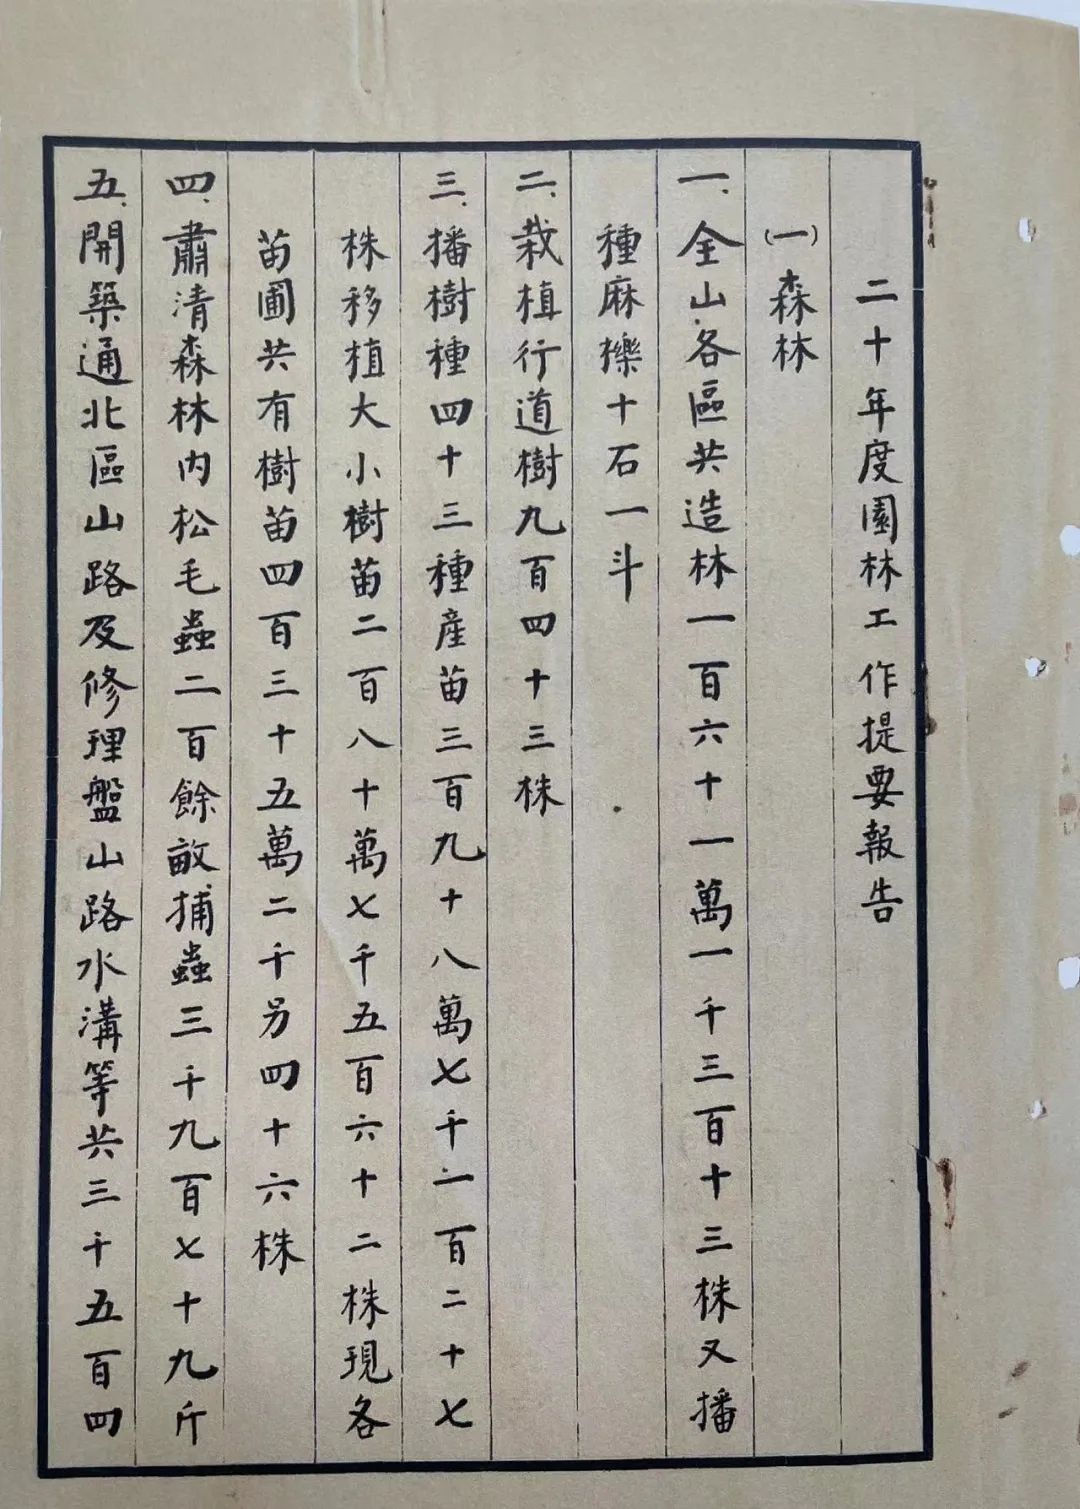 二十年度園林工作提要報告
(一)森林
一、全山各區共造林一百六十一萬一千三百十三株又播
種麻櫟十石一斗
二、栽植行道樹九百四十三株
三、播樹種四十三種產苗三百九十八萬七千一百二十七
株移植大小樹苗二百八十萬七千五百六十二株現各
苗圃共有樹苗四百三十五萬二千另四十六株
四、肅清森林內松毛蟲二百餘畝捕蟲三千九百七十九斤
五、開築通北區山路及修理盤山路水溝等共三千五百四